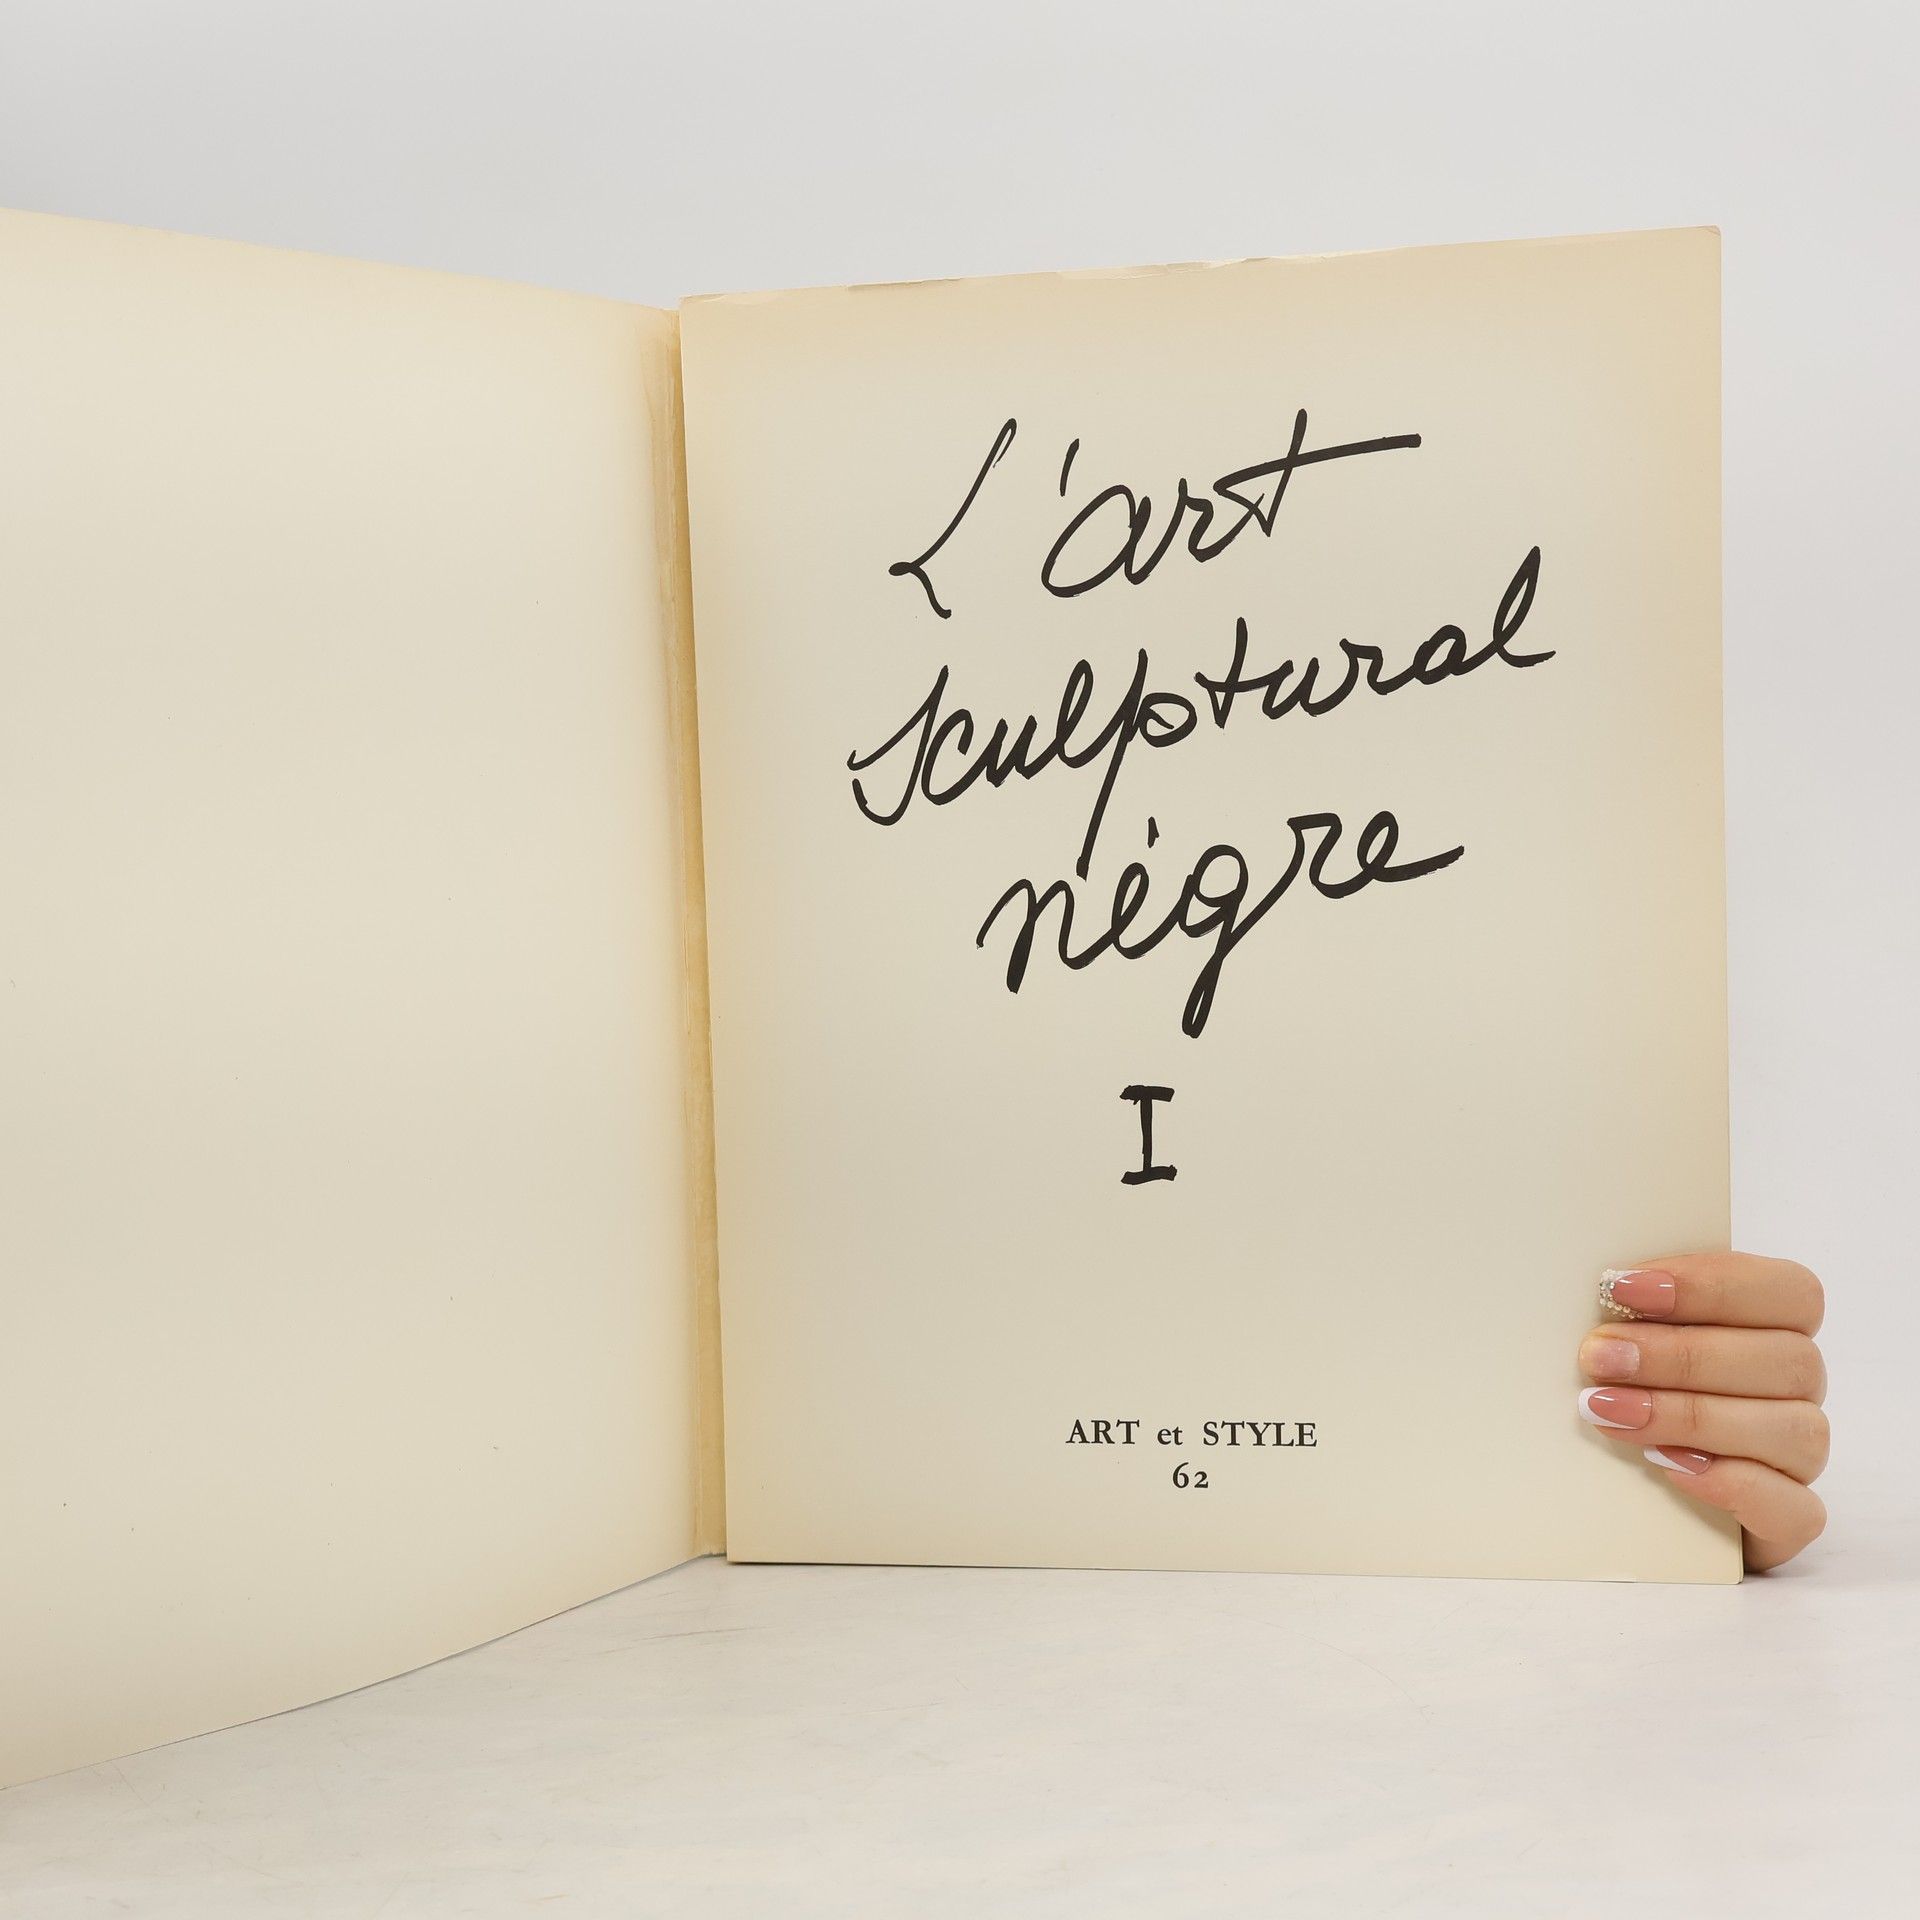 L'art
sculptural
nègre
I
ART et STYLE
62